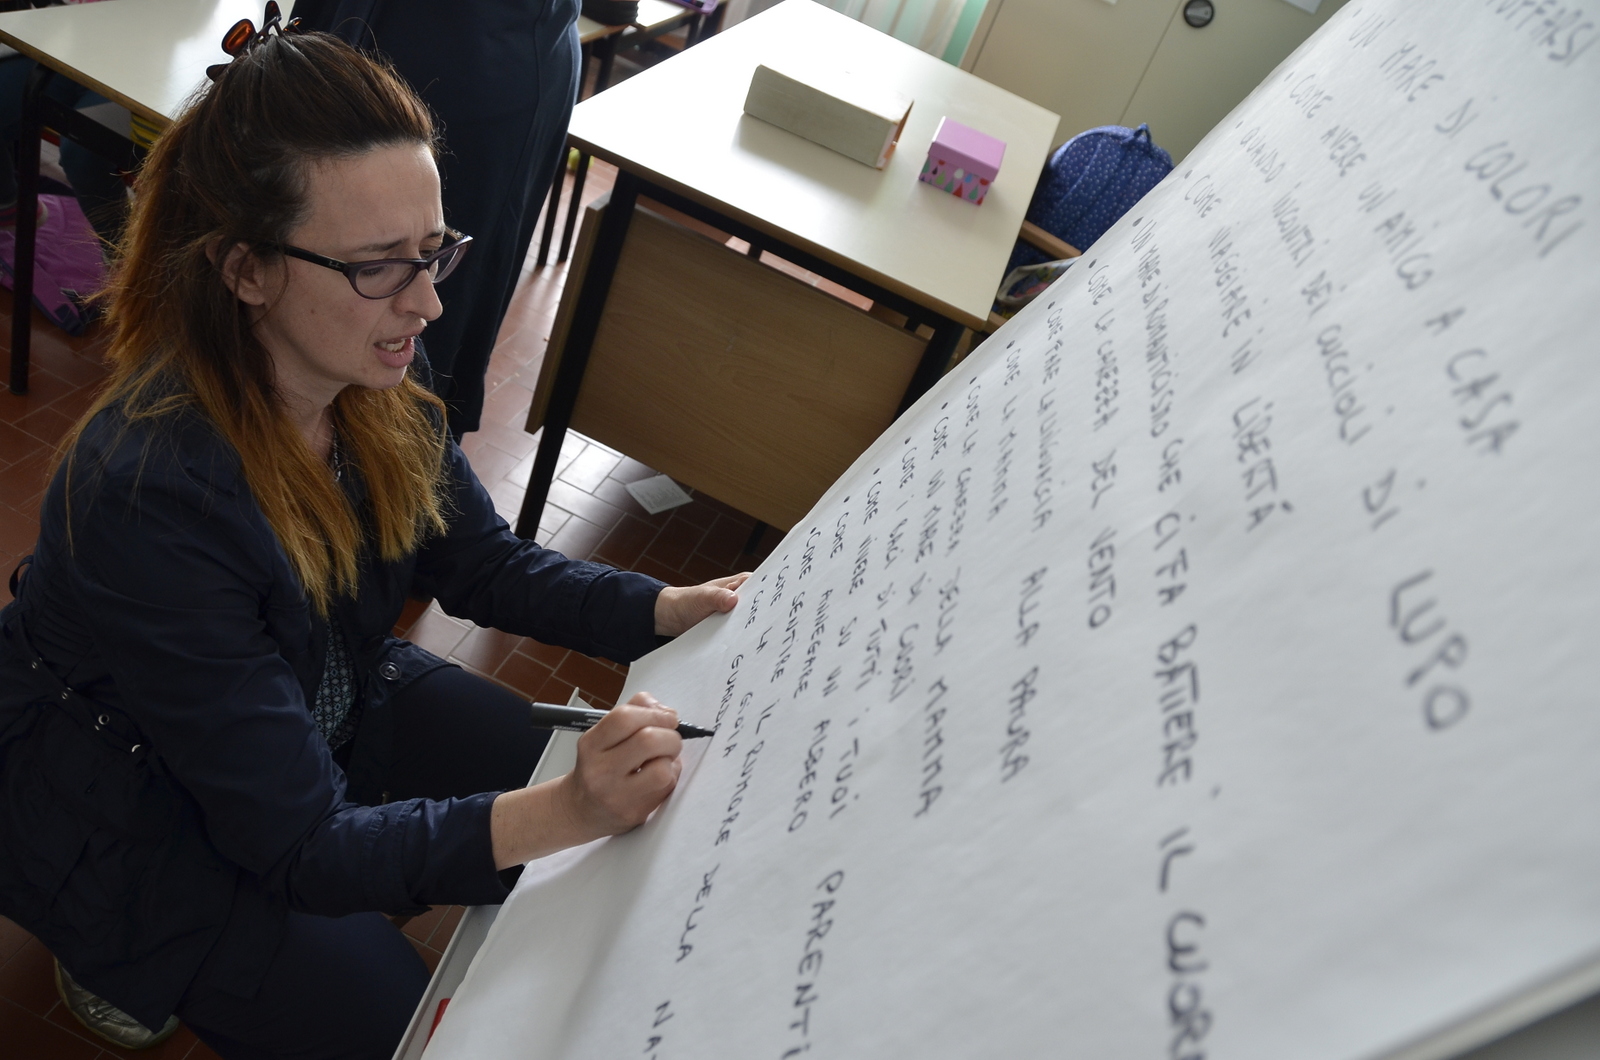 TUFFARSI
• UN MARE DI COLORI
• COME AVERE UN AMICO A CASA
• QUANDO INCONTRI DEI CUCCIOLI DI LUPO
• COME VIAGGIARE IN LIBERTÁ
• UN MARE DI ROMANTICISMO CHE CI FA BATTERE IL CUOR
• COME LA CAREZZA DEL VENTO
• COME FARE LA LINGUACCIA ALLA PAURA
• COME LA MAMMA
• COME LA CAREZZA DELLA MAMMA
• COME UN MARE DI CUORI
• COME I BACI DI TUTTI I TUOI PARENTI
• COME VIVERE SU UN ALBERO
• COME ANNEGARE
• COME SENTIRE IL RUMORE DELLA NA-
• COME LA GIOIA
• COME GUARDA